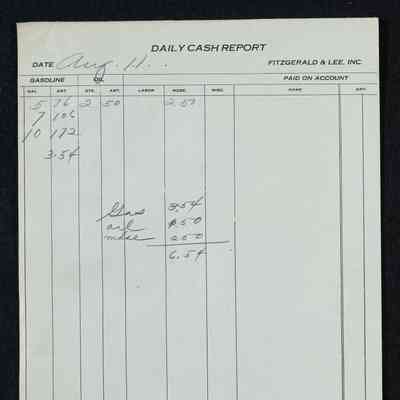 DAILY CASH REPORT
DATE Aug. 11. FITZGERALD & LEE, INC.
GASOLINE OIL PAID ON ACCOUNT
GAL. AMT. QTS. AMT. LABOR MDSE. MISC. NAME AMT.
5 76 2 50 2.50
7 106
10 172
3.54
Gas 3.54
oil 50
mdse 250
6.54